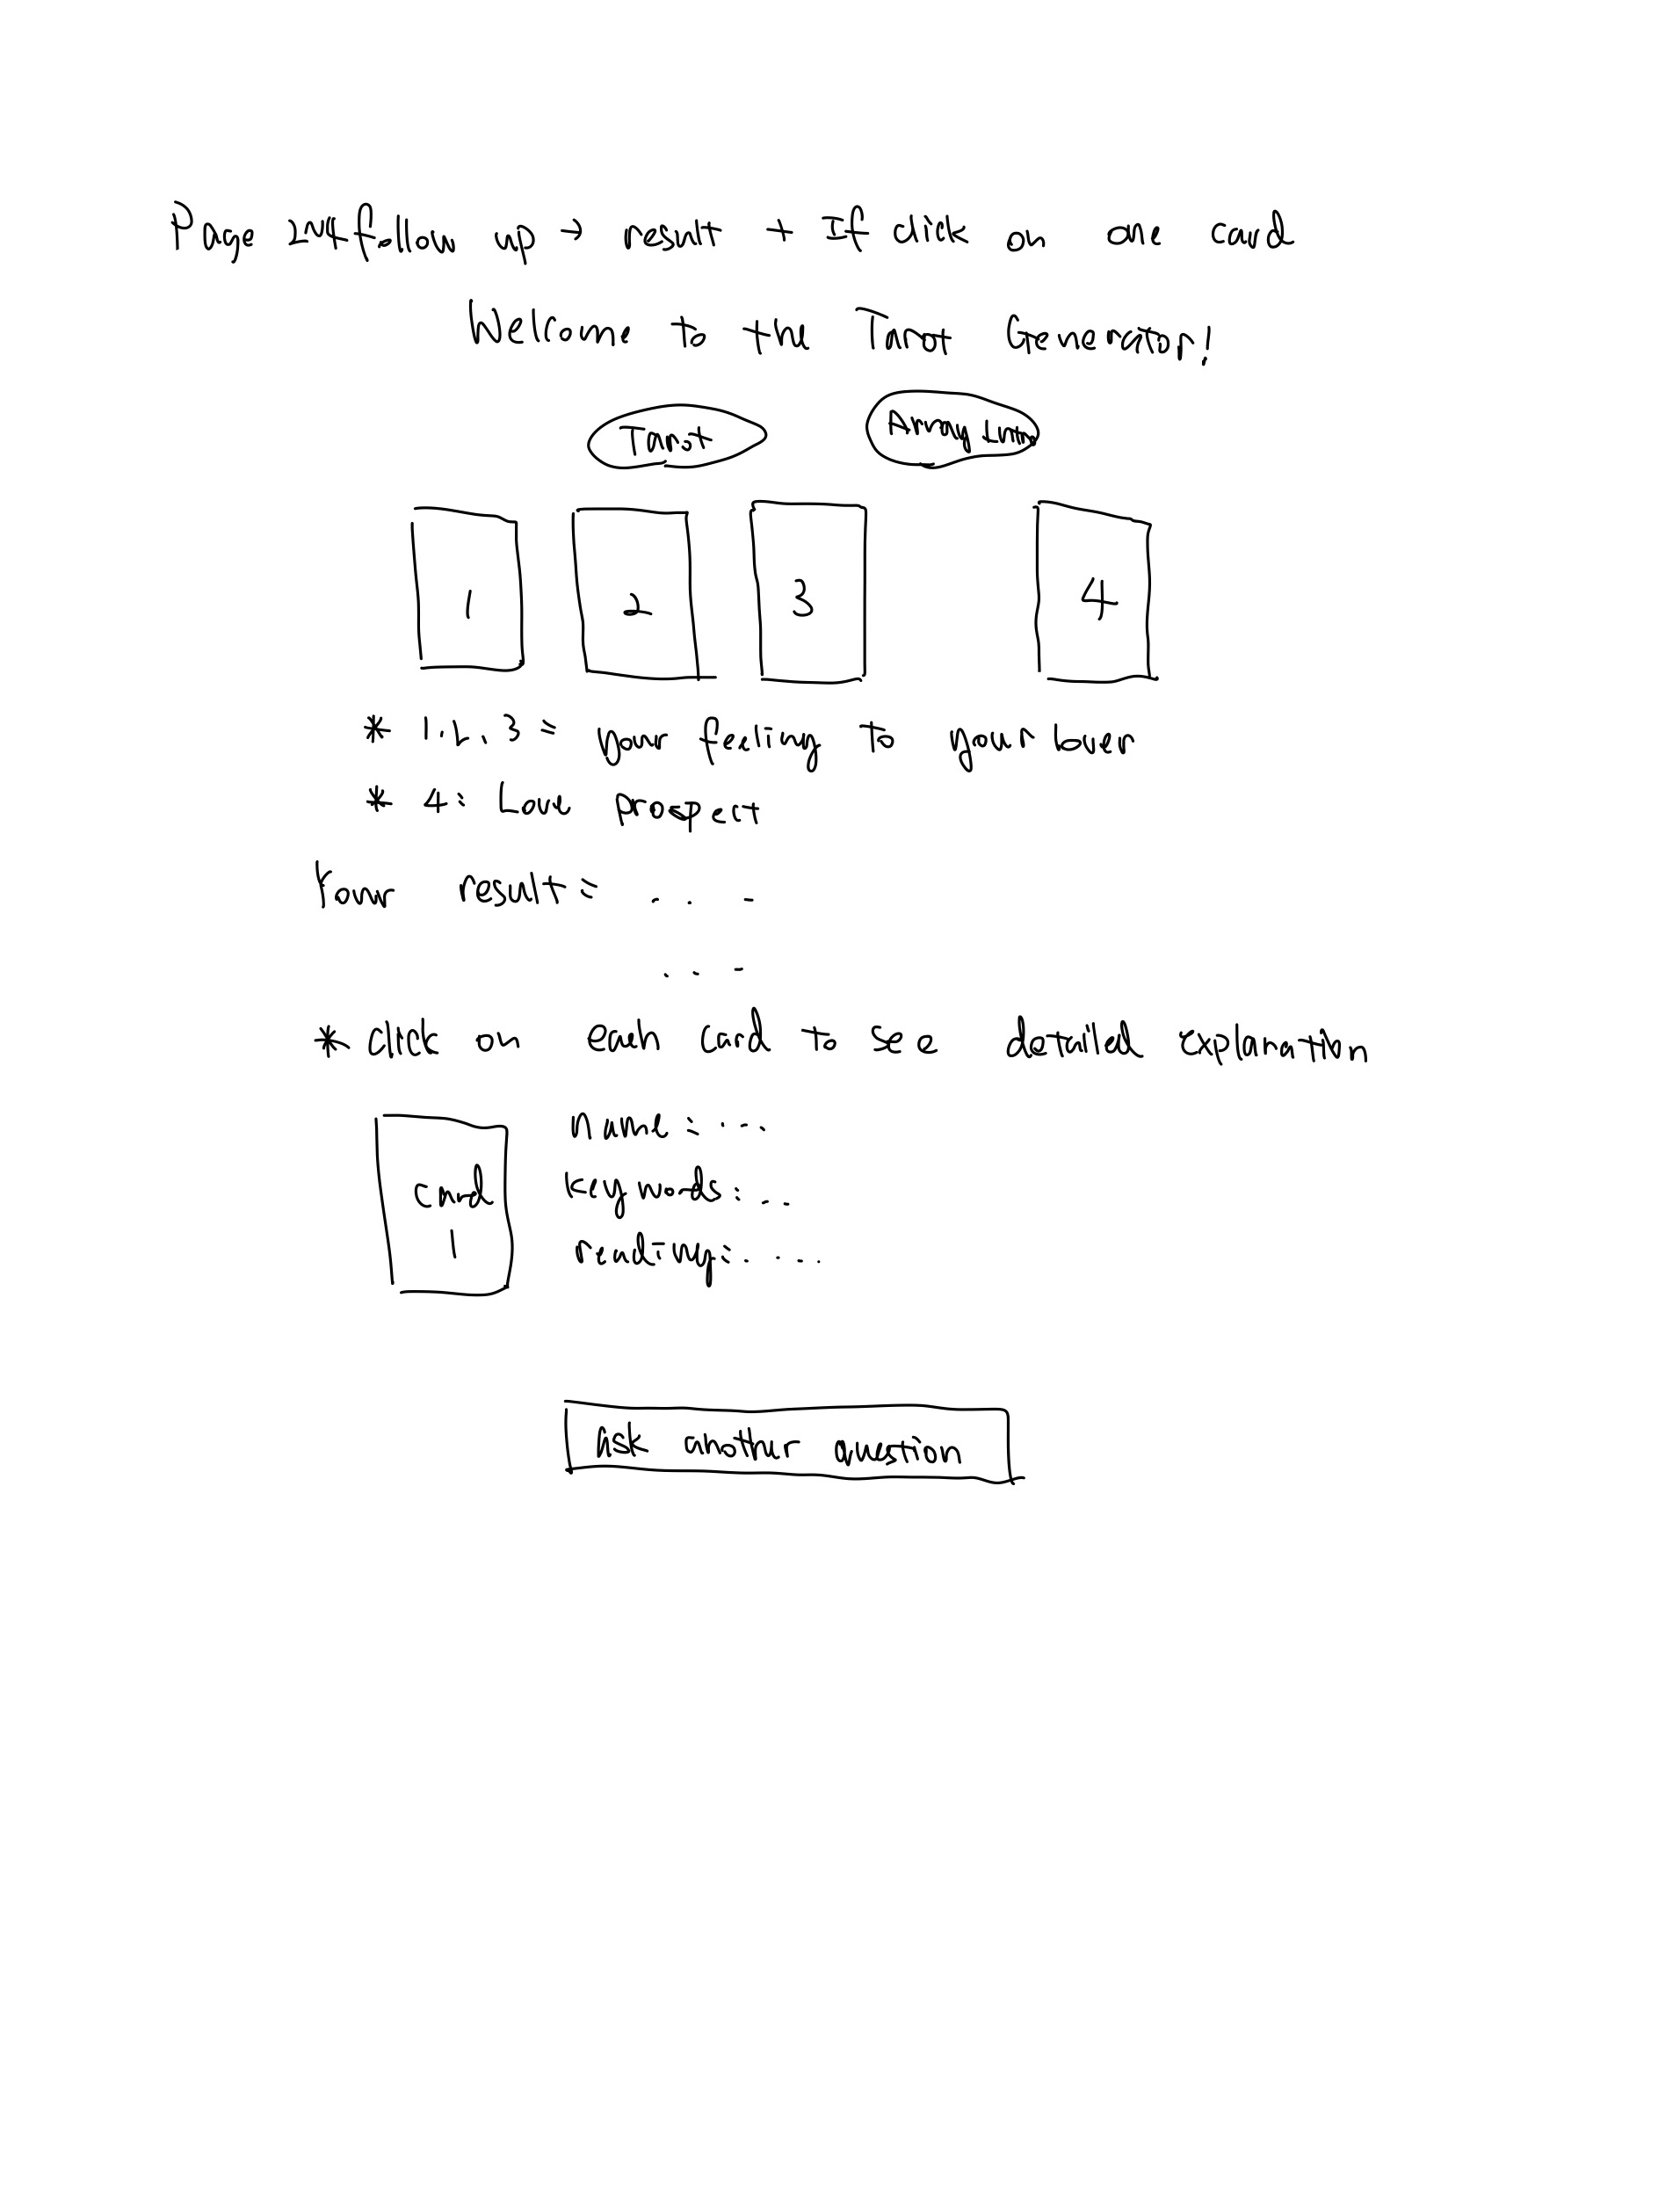 Page 2 follow up → result + If click on one card
Welcome to the Tarot Generator!
Tarot
1 2 3 4
* 1, 2, 3 = your feeling to your lover
* 4: Love prospect
Your result = ...
...
* click on each card to see detailed explanation
name: ...
card 1
keywords: ...
reading: ....
Ask another question